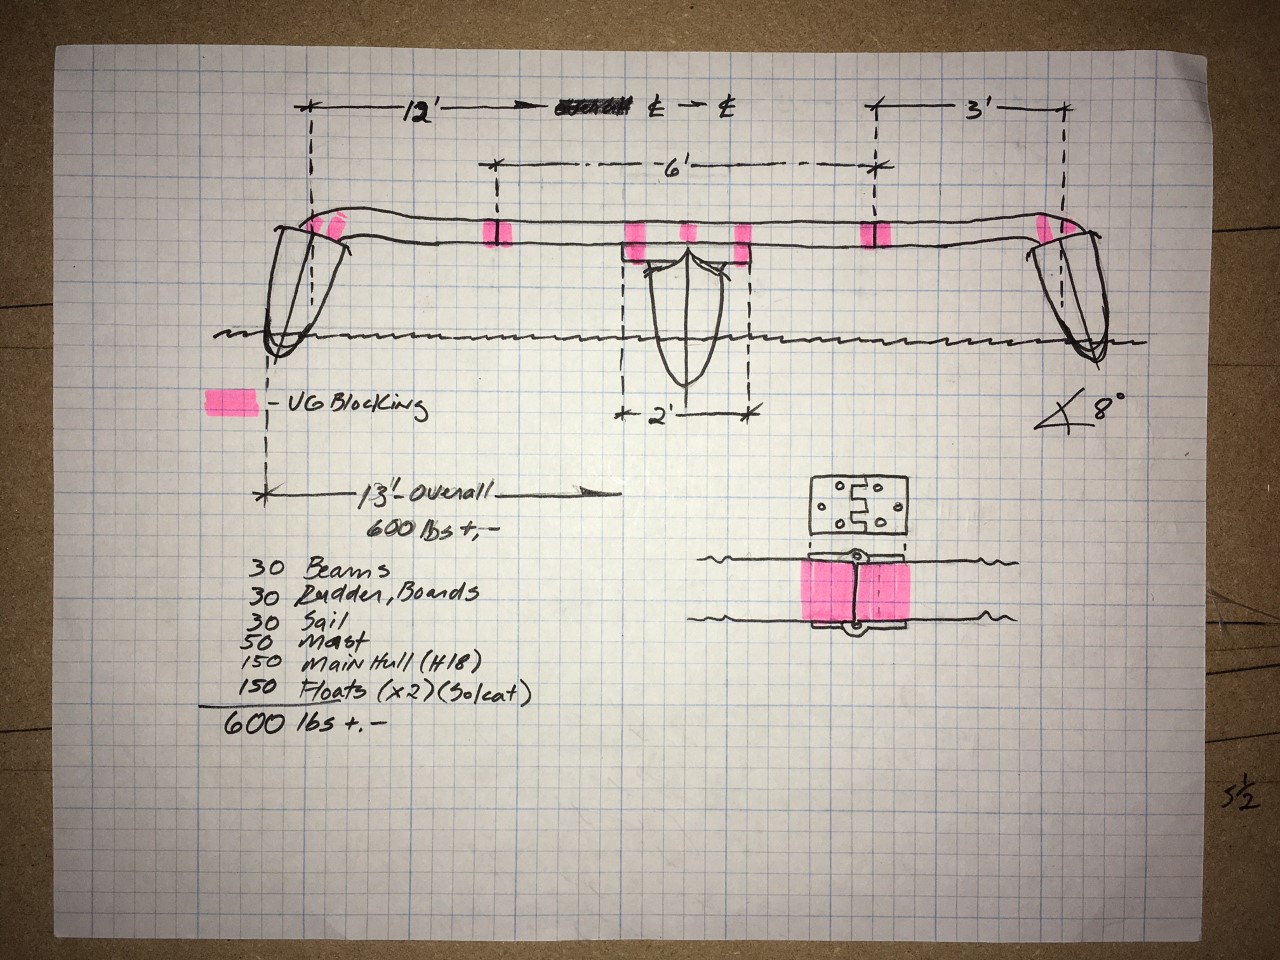 12' ℄ → ℄ 3'
6'
- VG Blocking
2'
8°
13' Overall
600 lbs +,-
30 Beams
30 Rudder, Boards
30 Sail
50 Mast
150 Main Hull (H18)
150 Floats (x2) (Solcat)
600 lbs +.-
5 1/2